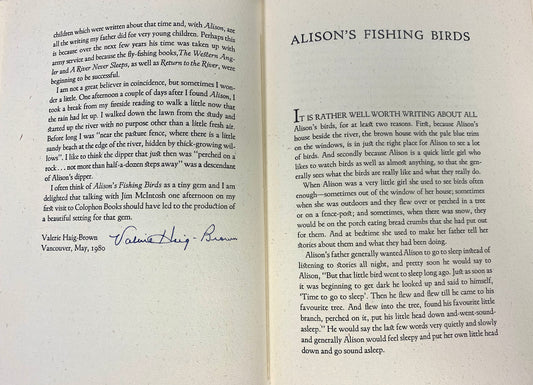 children which were written about that time and, with Alison, are
all the writing my father did for very young children. Perhaps this
is because over the next few years his time was taken up with
army service and because the fly-fishing books, The Western Ang-
ler and A River Never Sleeps, as well as Return to the River, were
beginning to be successful.
I am not a great believer in coincidence, but sometimes I won-
der a little. One afternoon a couple of days after I found Alison, I
took a break from my fireside reading to walk a little now that
the rain had let up. I walked down the lawn from the study and
started up the river with no purpose other than a little fresh air.
Before long I was "near the pasture fence, where there is a little
sandy beach at the edge of the river, hidden by thick-growing wil-
lows". I like to think the dipper that just then was "perched on a
rock . . . not more than half-a-dozen steps away" was a descendant
of Alison's dipper.
I often think of Alison's Fishing Birds as a tiny gem and I am
delighted that talking with Jim McIntosh one afternoon on my
first visit to Colophon Books should have led to the production of
a beautiful setting for that gem.
Valerie Haig-Brown Valerie Haig-Brown
Vancouver, May, 1980
ALISON'S FISHING BIRDS
IT IS RATHER WELL WORTH WRITING ABOUT ALL
Alison's birds, for at least two reasons. First, because Alison's
house beside the river, the brown house with the pale blue trim
on the windows, is in just the right place for Alison to see a lot
of birds. And secondly because Alison is a quick little girl who
likes to watch birds as well as almost anything, so that she gen-
erally sees what the birds are really like and what they really do.
When Alison was a very little girl she used to see birds often
enough—sometimes out of the window of her house; sometimes
when she was outdoors and they flew over or perched in a tree
or on a fence-post; and sometimes, when there was snow, they
would be on the porch eating bread crumbs that she had put out
for them. And at bedtime she used to make her father tell her
stories about them and what they had been doing.
Alison's father generally wanted Alison to go to sleep instead of
listening to stories all night, and pretty soon he would say to
Alison, "But that little bird went to sleep long ago. Just as soon as
it was beginning to get dark he looked up and said to himself,
'Time to go to sleep'. Then he flew and flew till he came to his
favourite tree. And flew into the tree, found his favourite little
branch, perched on it, put his little head down and-went-sound-
asleep." He would say the last few words very quietly and slowly
and generally Alison would feel sleepy and put her own little head
down and go sound asleep.